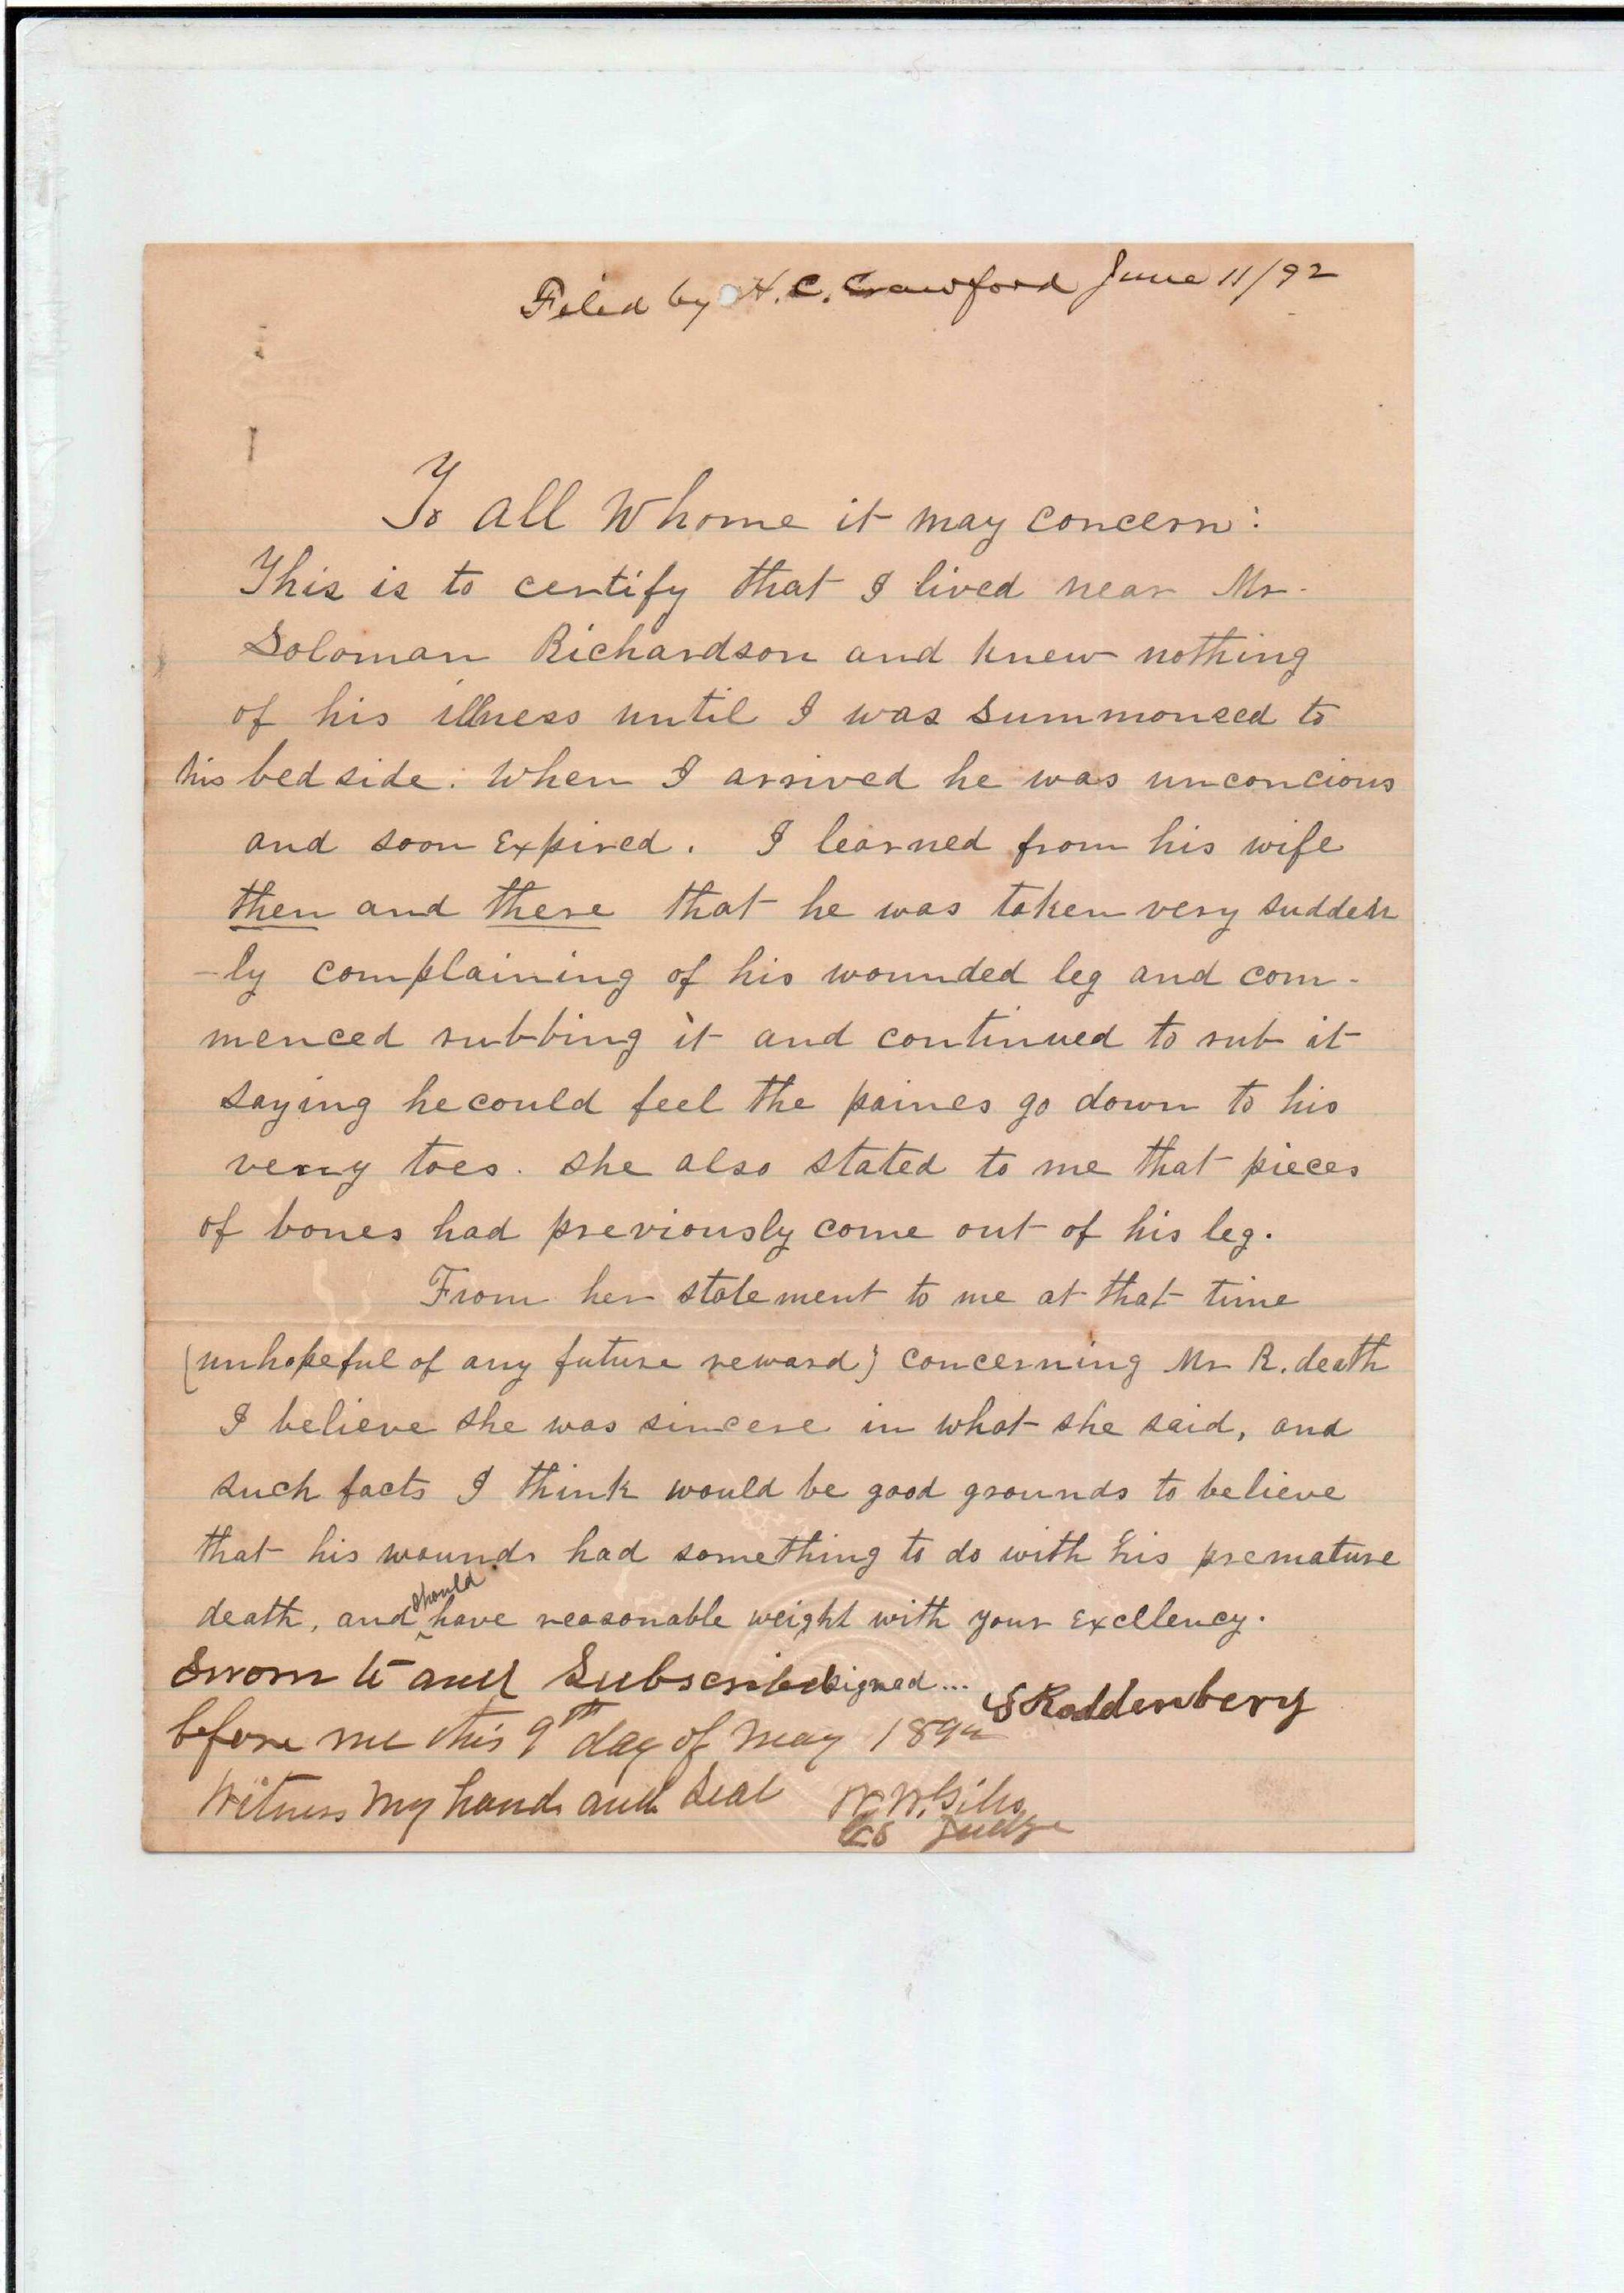 Filed by H. C. Crawford June 11/92
To all Whome it may concern:
This is to certify that I lived near Mr.
Soloman Richardson and knew nothing
of his illness until I was summonsed to
his bed side. When I arrived he was unconcious
and soon Expired. I learned from his wife
then and there that he was taken very sudden
-ly complaining of his wounded leg and com-
menced rubbing it and continued to rub it
saying he could feel the paines go down to his
very toes. she also stated to me that pieces
of bones had previously come out of his leg.
From her statement to me at that time
(unhopeful of any future reward) concerning Mr R. death
I believe she was sincere in what she said, and
such facts I think would be good grounds to believe
that his wounds had something to do with his premature
death, and should have reasonable weight with your Excellency.
Sworn to and Subscribed signed...
S Roddenbery
before me this 9th day of May 1892
Witness My hand and Seal W. W.
Co Judge